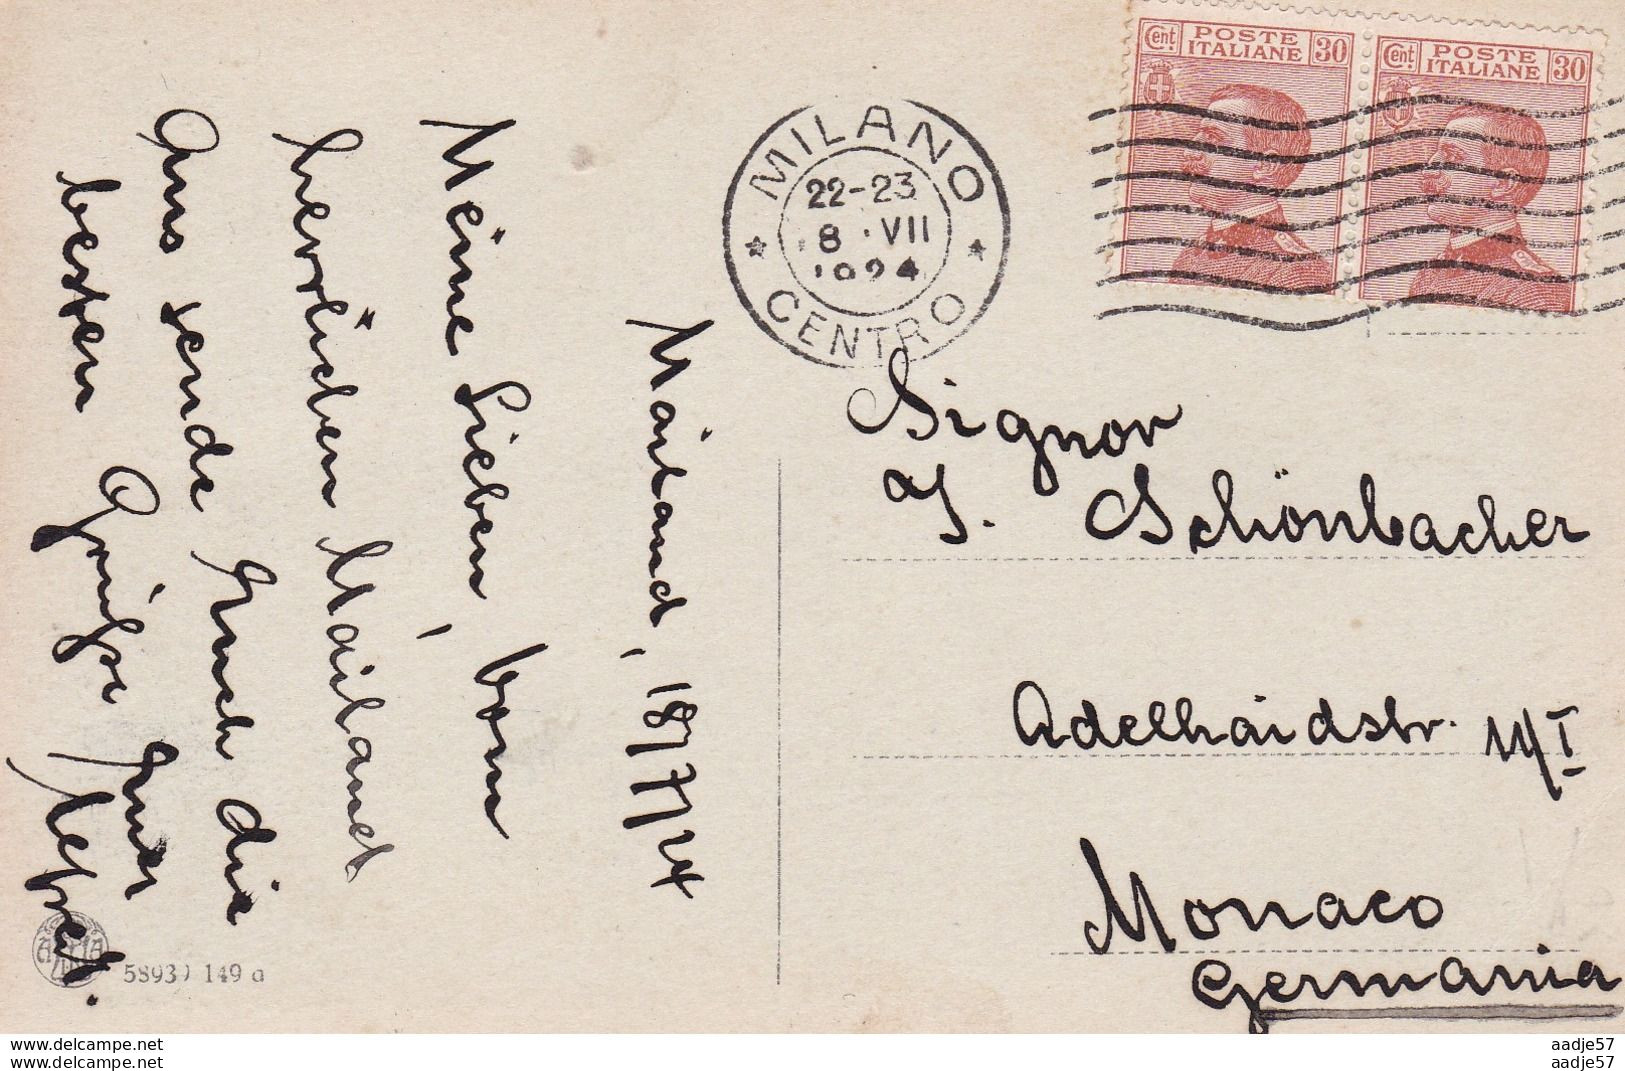 Cent. POSTE ITALIANE 30
Cent. POSTE ITALIANE 30
MILANO
22-23
8 · VII
1924
CENTRO
Mailand, 18/7/24
Meine Lieben, vom
herrlichen Mailand
aus sende Euch die
besten Grüße Euer
Signor
J. Schönbacher
Adelhaidstr. 11/I
Monaco
Germania
5893) 149 a
www.delcampe.net
www.delcampe.net
aadje57
aadje57